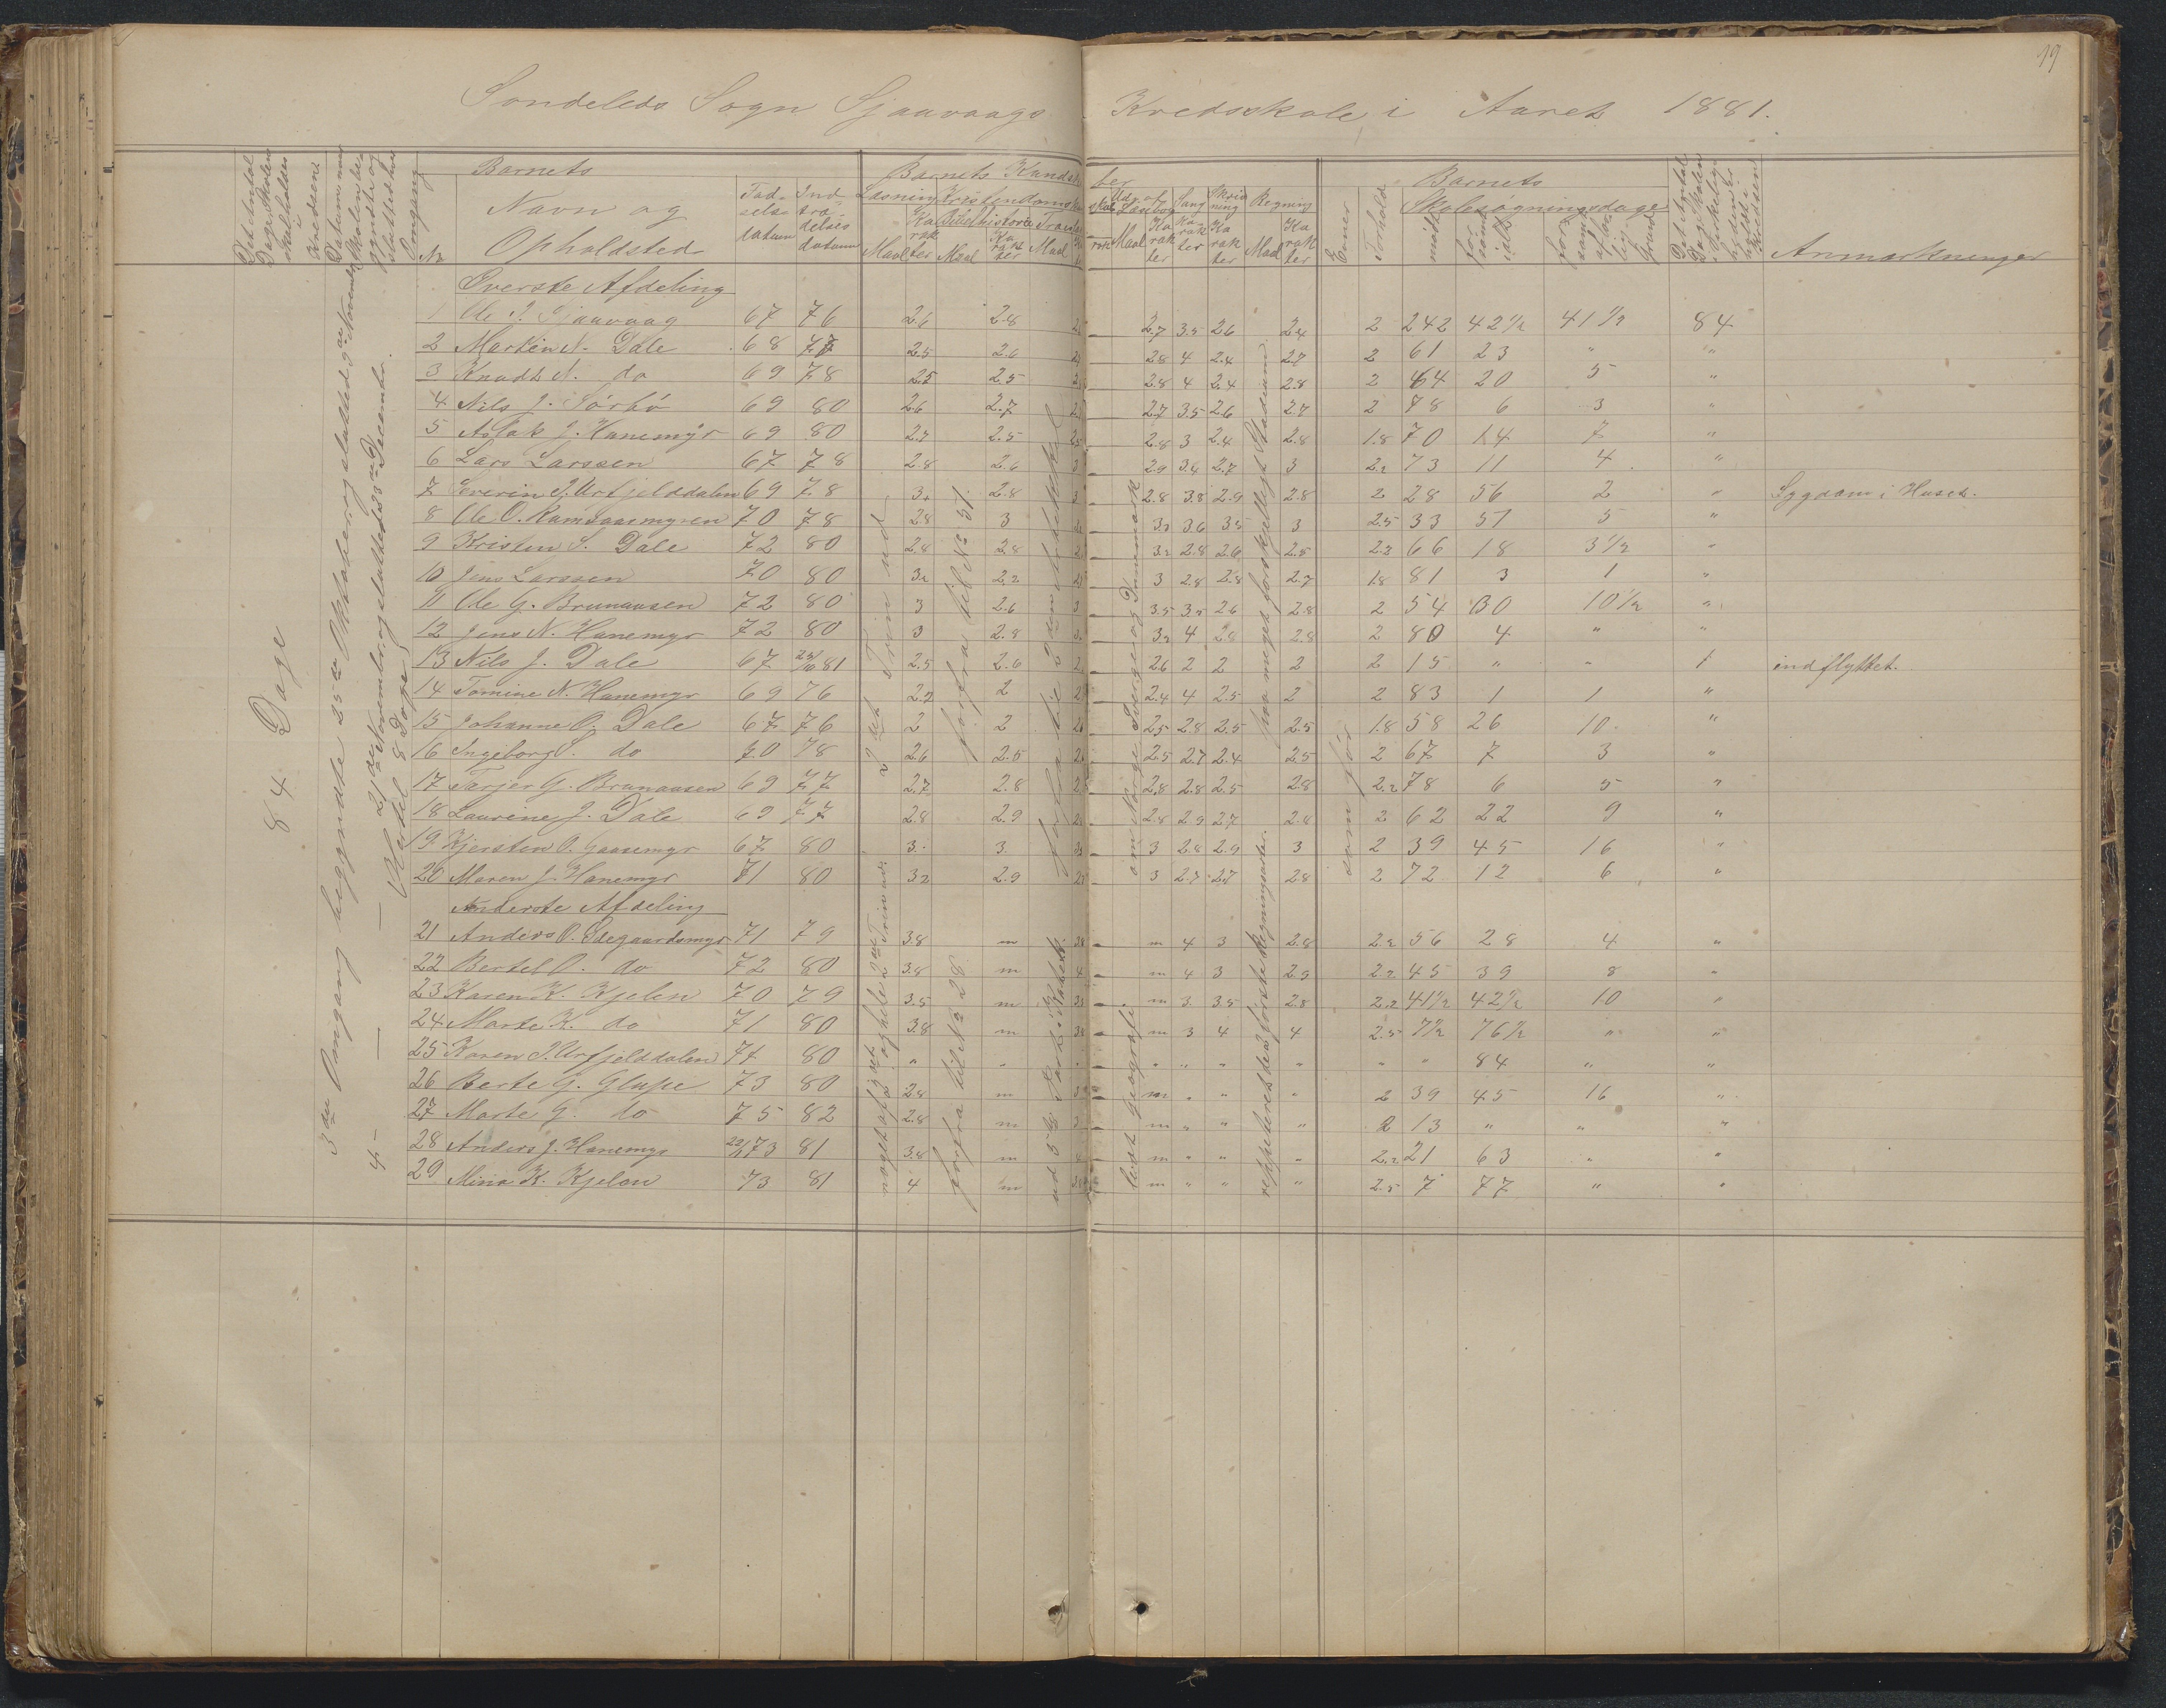 19
Söndeleds Sogn Sjaavaags Kredsskole i Aaret 1881.
Barnets
Barnets Kundskaber
Barnets
Navn og Opholdsted
Födselsdatum
Indtrædelsesdatum
Læsning
Kristendomskundskab
Udv. af Læsebog
Sang
Skrivning
Regning
Evner
Forhold
Skolesøgningsdage
Anmærkninger
84 Dage
3die Omgang begyndte 25de Oktober og sluttede 9de November
4 — 21de November og sluttede 23de December.
Nr.
Överste Afdeling
1 Ole J. Sjaavaag 67 76 2.6 2.8 2.7 3.5 2.6 2.4 2 242 42½ 41½ 84
2 Martin N. Dale 68 77 2.5 2.6 2.8 4 2.4 2.7 2 61 23 " "
3 Knudt N. do 69 78 2.5 2.5 2.8 4 2.4 2.8 2 64 20 5 "
4 Nils J. Sörbö 69 80 2.6 2.7 2.7 3.5 2.6 2.7 2 78 6 3 "
5 Aslak J. Hanemyr 69 80 2.7 2.5 2.8 3 2.4 2.8 1.8 70 14 7 "
6 Lars Larssen 67 78 2.8 2.6 2.9 3.4 2.7 3 2.2 73 11 4 "
7 Severin J. Urfjelddalen 69 78 3. 2.8 2.8 3.8 2.9 2.8 2 28 56 2 " Sygdom i Huset.
8 Ole O. Ramsaasmyren 70 78 2.8 3 3.2 3.6 3.5 3 2.5 33 51 5 "
9 Kristen S. Dale 72 80 2.8 2.8 3.2 2.8 2.6 2.5 2.2 66 18 3½ "
10 Jens Larssen 70 80 3.2 2.2 3 2.8 2.8 2.7 1.8 81 3 1 "
11 Ole G. Brunaasen 72 80 3 2.6 3.5 3.5 2.6 2.8 2 54 30 10½ "
12 Jens N. Hanemyr 72 80 3 2.8 3.2 4 2.8 2.8 2 80 4 " "
13 Nils J. Dale 67 25/10 81 2.5 2.6 2.6 2 2 2 2 15 " " 1 indflyttet.
14 Tomine N. Hanemyr 69 76 2.2 2 2.4 4 2.5 2 2 83 1 1 "
15 Johanne O. Dale 67 76 2 2 2.5 2.8 2.5 2.5 1.8 58 26 10 "
16 Ingeborg S. do 70 78 2.6 2.5 2.5 2.7 2.4 2.5 2 67 7 3 "
17 Tarjer G. Brunaasen 69 77 2.7 2.8 2.8 2.8 2.5 2.8 2.2 78 6 5 "
18 Laurine J. Dale 69 77 2.8 2.9 2.8 2.9 2.7 2.8 2 62 22 9 "
19 Kjersten O. Gaasemyr 67 80 3. 3 3 2.8 2.9 3 2 39 45 16 "
20 Maren J. Hanemyr 71 80 3.2 2.9 3 2.7 2.7 2.8 2 72 12 6 "
Underste Afdeling
21 Anders O. Ödegaardsmyr 71 79 3.8 m m 4 3 2.8 2.2 56 28 4 "
22 Bertel O. do 72 80 3.8 m m 4 3 2.9 2.2 45 39 8 "
23 Karen K. Kjelen 70 79 3.5 m m 3 3.5 2.8 2.2 41½ 42½ 10 "
24 Marte K. do 71 80 3.8 m m 3 4 4 2.5 7½ 76½ " "
25 Karen J. Urfjelddalen 74 80 " " " " " " " " 84 " "
26 Berte G. Glupe 73 80 2.8 m m " " " 2 39 45 16 "
27 Marte G. do 75 82 2.8 m m " " " 2 13 " " "
28 Anders J. Hanemyr 73 81 3.8 m m " " " 2.2 21 63 " "
29 Mina K. Kjelen 73 81 4 m m " " " 2.5 7 77 " "
2det Trin ud
forfra til No 51.
om Norge Sverige og Danmark
paa meget forskjelligt Stadium
som för
forfra til No 28